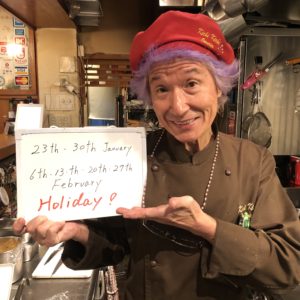 23th · 30th January
6th · 13th · 20th · 27th
February
Holiday !